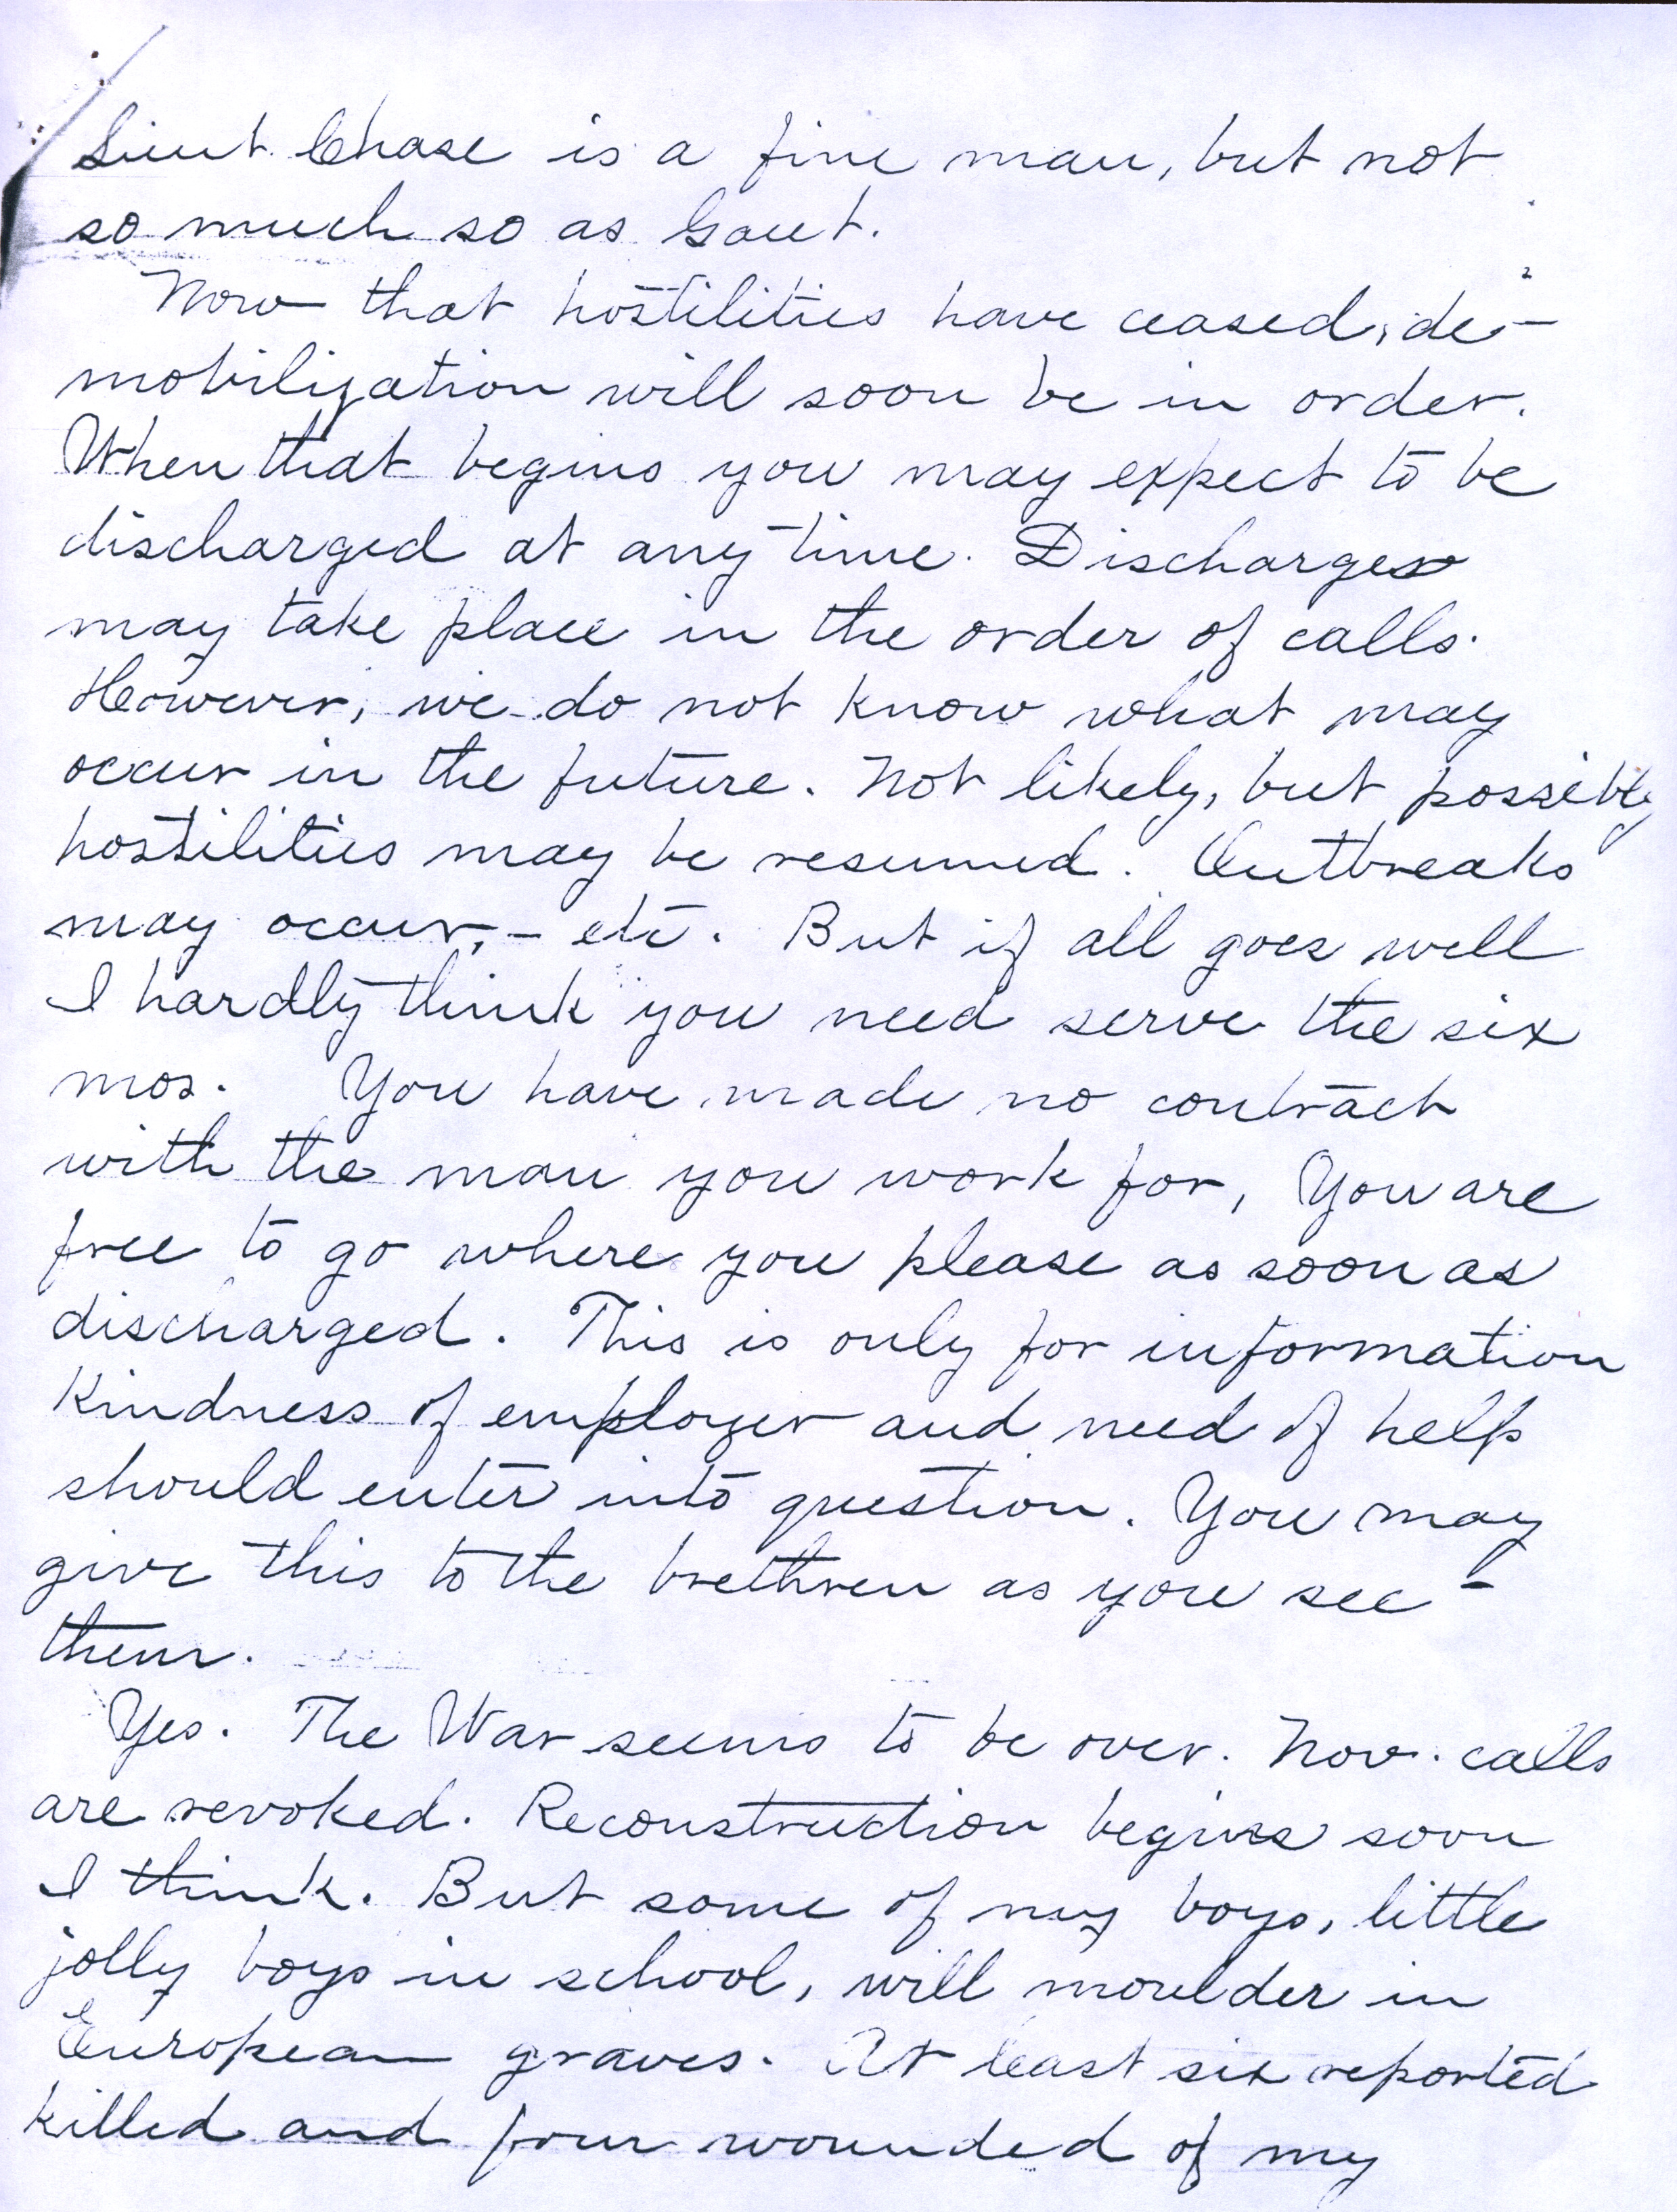 Lieut. Chase is a fine man, but not
so much so as Gaut.
Now that hostilities have ceased, de-
mobilization will soon be in order.
When that begins you may expect to be
discharged at any time. Discharges
may take place in the order of calls.
However, we do not know what may
occur in the future. Not likely, but possibly
hostilities may be resumed. Outbreaks
may occur, - etc. But if all goes well
I hardly think you need serve the six
mos. You have made no contract
with the man you work for, You are
free to go where you please as soon as
discharged. This is only for information
Kindness of employer and need of help
should enter into question. You may
give this to the brethren as you see -
them.
Yes. The War seems to be over. Nov. calls
are revoked. Reconstruction begins soon
I think. But some of my boys, little
jolly boys in school, will moulder in
European graves. At least six reported
killed and four wounded of my